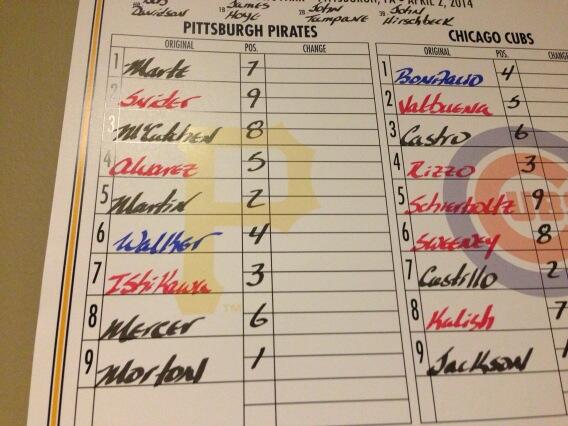 PITTSBURGH, PA - APRIL 2, 2014
HP Bob 1B James 2B John 3B John
Davidson Hoye Tumpane Hirschbeck
PITTSBURGH PIRATES
ORIGINAL POS. CHANGE
1 Marte 7
2 Snider 9
3 McCutchen 8
4 Alvarez 5
5 Martin 2
6 Walker 4
7 Ishikawa 3
8 Mercer 6
9 Morton 1
TM
CHICAGO CUBS
ORIGINAL POS. CHANGE
1 Bonifacio 4
2 Valbuena 5
3 Castro 6
4 Rizzo 3
5 Schierholtz 9
6 Sweeney 8
7 Castillo 2
8 Kalish 7
9 Jackson 1